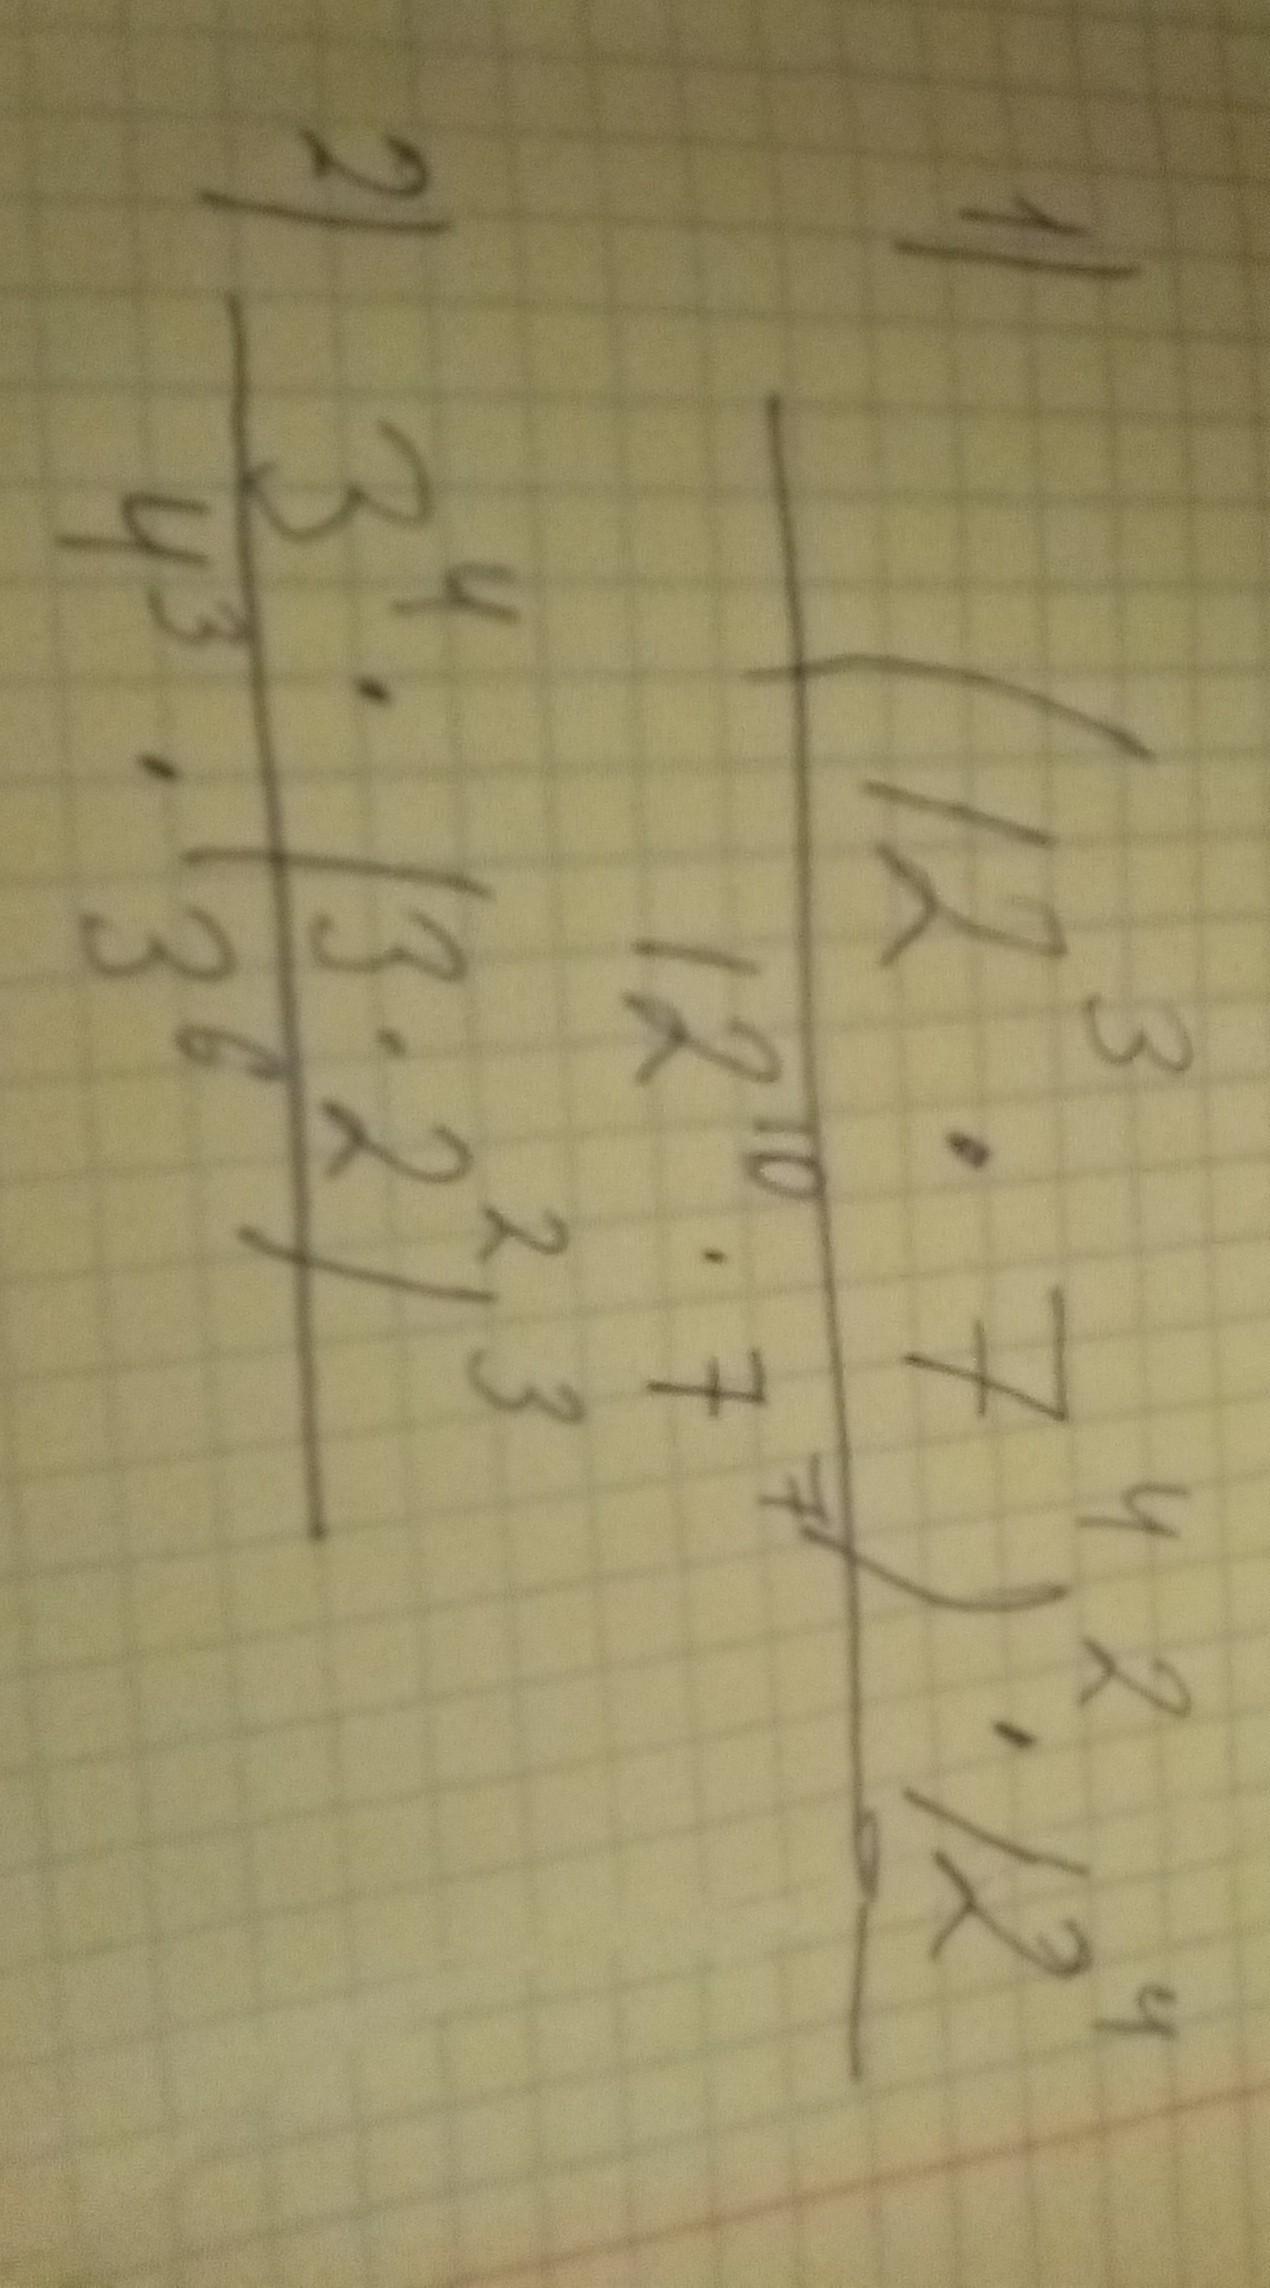 1) (12³ · 7⁴)² · 12⁴
12¹⁰ · 7⁷
2) 3⁴ · (3 · 2²)³
4³ · 3⁶